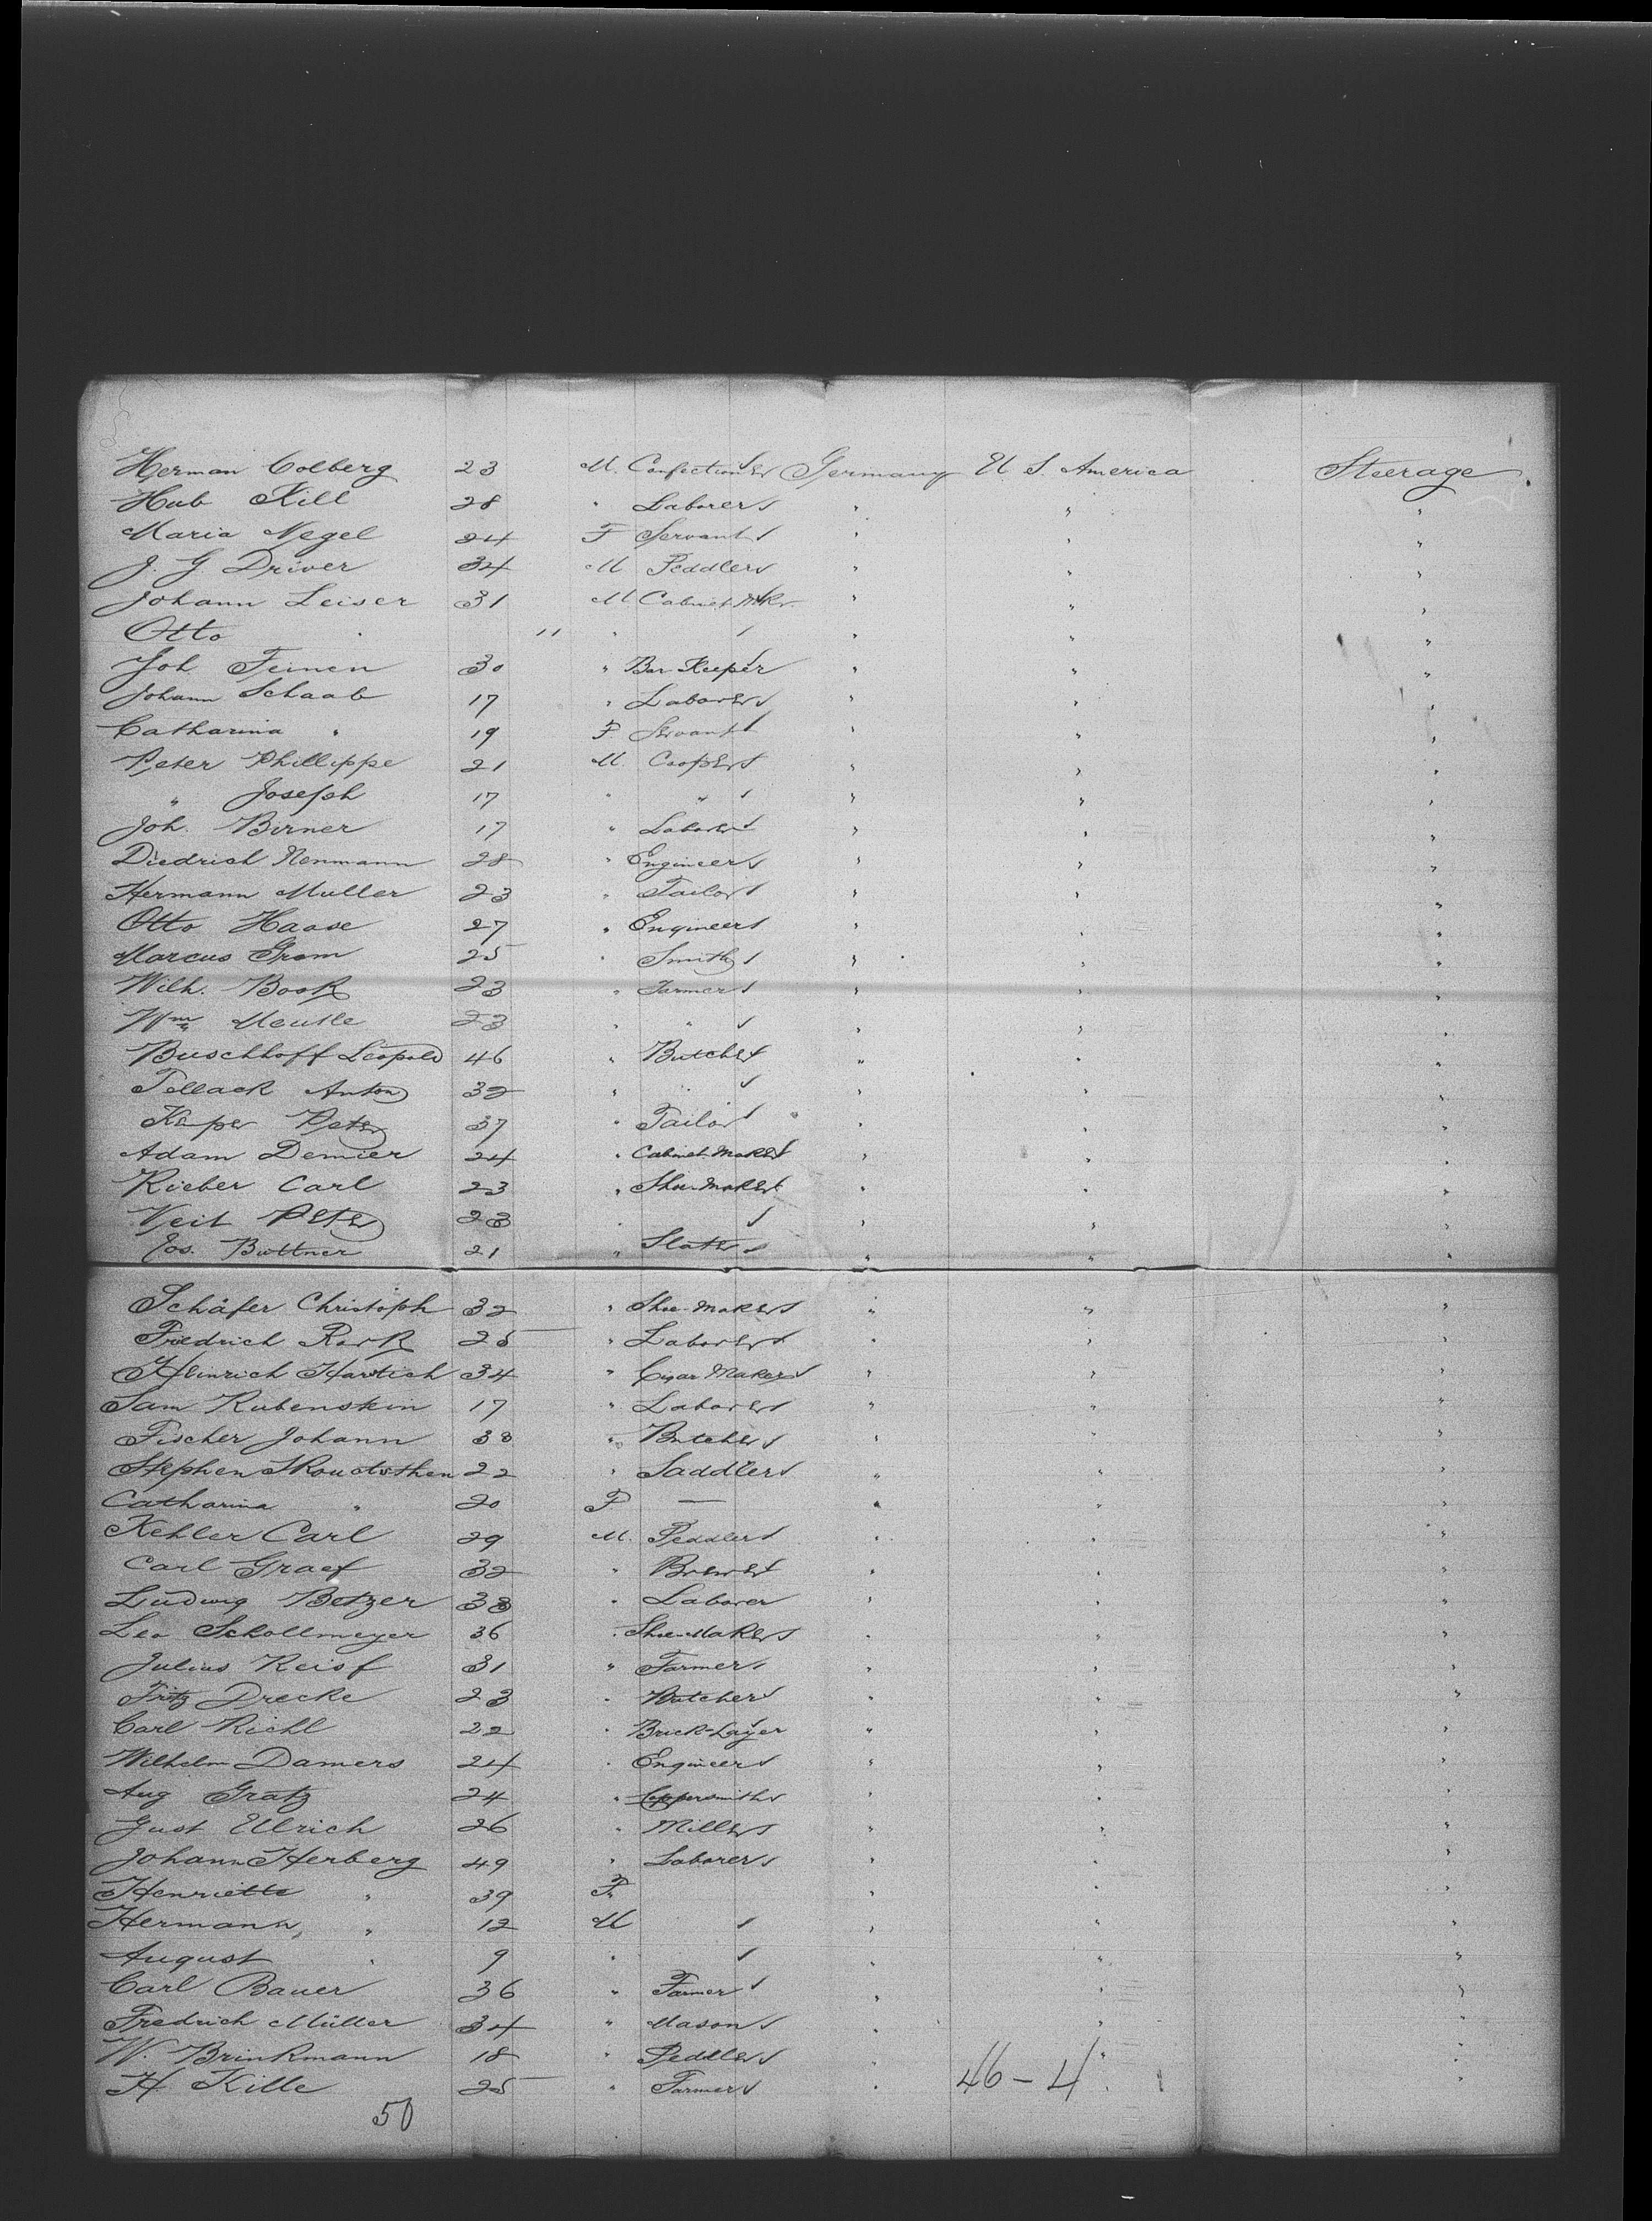 Herman Colberg 23 M. Confectioner Germany U. S. America Steerage
Hub Kill 28 " Laborer " " "
Maria Negel 24 F Servant " " "
J. G. Driver 34 M Peddler " " "
Johann Leiser 31 M Cabinet Mkr. " " "
Otto " 11 " " " "
Joh Feinen 30 " Bar Keeper " " "
Johann Schaab 17 " Laborer " " "
Catharina " 19 F Servant " " "
Peter Phillippe 21 M. Cooper " " "
" Joseph 17 " " " " "
Joh. Birner 17 " Laborer " " "
Diedrich Nenmann 28 " Engineer " " "
Hermann Muller 23 " Tailor " " "
Otto Haase 27 " Engineer " " "
Marcus Gram 25 " Smith " " "
Wilh. Book 23 " Farmer " " "
Wm 23 " " " " "
Buschhoff Leopold 46 " Butcher " " "
Tellack Anton 32 " " " " "
Kaper Peter 37 " Tailor " " "
Adam Demier 24 " Cabinet Maker " " "
Rieber Carl 23 " Shoe-Maker " " "
Veit Peter 23 " " " "
Jos. Buttner 21 " Slater " " "
Schäfer Christoph 32 " Shoe-Maker " " "
Friedrich Rork 25 " Laborer " " "
Heinrich Hartich 34 " Cigar Maker " " "
Sam Rubenstein 17 " Laborer " " "
Fischer Johann 38 " Butcher " " "
Stephen 22 " Saddler " " "
Catharina " 20 F — " " "
Kehler Carl 29 M. Peddler " " "
Carl Graef 32 " Brewer " " "
Ludwig Betzer 38 " Laborer " " "
Leo Schollmeyer 36 " Shoe-Maker " " "
Julius Reisf 31 " Farmer " " "
Fritz Drecke 23 " Butcher " " "
Carl Richl 22 " Brick-Layer " " "
Wilhelm Damers 24 " Engineer " " "
Aug Gratz 24 " Coppersmith " " "
Gust Ulrich 26 " Miller " " "
Johann Herberg 49 " Laborer " " "
Henriette " 39 F. " " "
Hermann " 12 M " " "
August " 9 " " " "
Carl Bauer 36 " Farmer " " "
Fredrich Müller 34 " Mason " " "
W. Brinkmann 18 " Peddler " " "
H Kille 25 " Farmer " " "
46-4
50